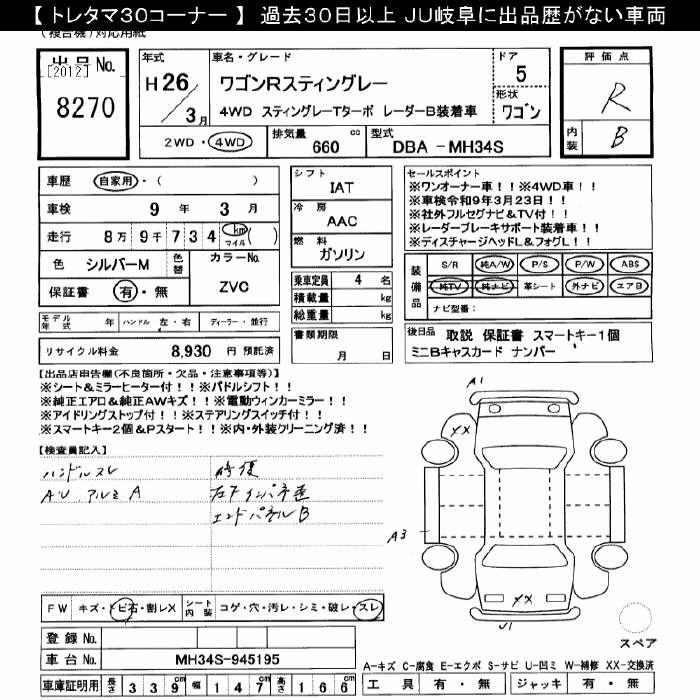 【 トレタマ30コーナー 】 過去30日以上 JU岐阜に出品歴がない車両
(複合機)対応用紙
出品 No.
[2012]
8270
年式
H 26
3 月
車名・グレード
ワゴンRスティングレー
4WD スティングレーTターボ レーダーB装着車
ドア
5
形状
ワゴン
2WD ・ 4WD
排気量
660 cc
型式
DBA - MH34S
評価点
R
内装
B
車歴 自家用・( )
車検 9 年 3 月
走行 8万 9千 7 3 4 km マイル ( )
色 シルバーM 色替
カラーNo.
ZVC
保証書 有・無
モデル年式 年 ハンドル 左・右 ディーラー・並行
リサイクル料金 8,930 円 預託済
シフト
IAT
冷房
AAC
燃料
ガソリン
乗車定員 4 名
積載量 kg
総重量 kg
書類期限
月 日
セールスポイント
※ワンオーナー車!!※4WD車!!
※車検令和9年3月23日!!
※社外フルセグナビ&TV付!!
※レーダーブレーキサポート装着車!!
※ディスチャージヘッドL&フォグL!!
装備品
S/R 純A/W P/S P/W ABS
純TV 純ナビ 革シート 外ナビ エアB
ナビ型番:
後日品 取説 保証書 スマートキー1個
ミニBキャスカード ナンバー
【出品店申告欄(不良箇所・欠品・注意事項等)】
※シート&ミラーヒーター付!!※パドルシフト!!
※純正エアロ&純正AWキズ!!※電動ウィンカーミラー!!
※アイドリングストップ付!!※ステアリングスイッチ付!!
※スマートキー2個&Pスタート!!※内・外装クリーニング済!!
【検査員記入】
ハンドルスレ
AW アルミ A
修復
右Fインパネ歪
エンドパネルB
A1
XX
A3
XX
U1
スペア
FW キズ・トビ石・割レX
シート内装 コゲ・穴・汚レ・シミ・破レ・スレ
登録 No.
車台 No. MH34S-945195
車庫証明用 長さ 3 3 9 cm 幅 1 4 7 cm 高さ 1 6 6 cm
A-キズ C-腐食 E-エクボ S-サビ U-凹ミ W-補修 XX-交換済
工具 有・無 ジャッキ 有・無